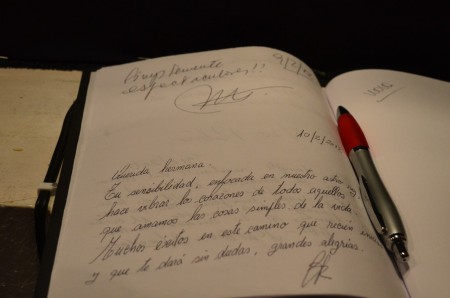 Simplemente
espectacular!!
Querida hermana.
Tu sensibilidad, enfocada en nuestro
hace vibrar los corazones de todos aquellos
que amamos las cosas simples de la vida
Muchos éxitos en este camino que recién
y que te dará sin dudas, grandes alegrías.